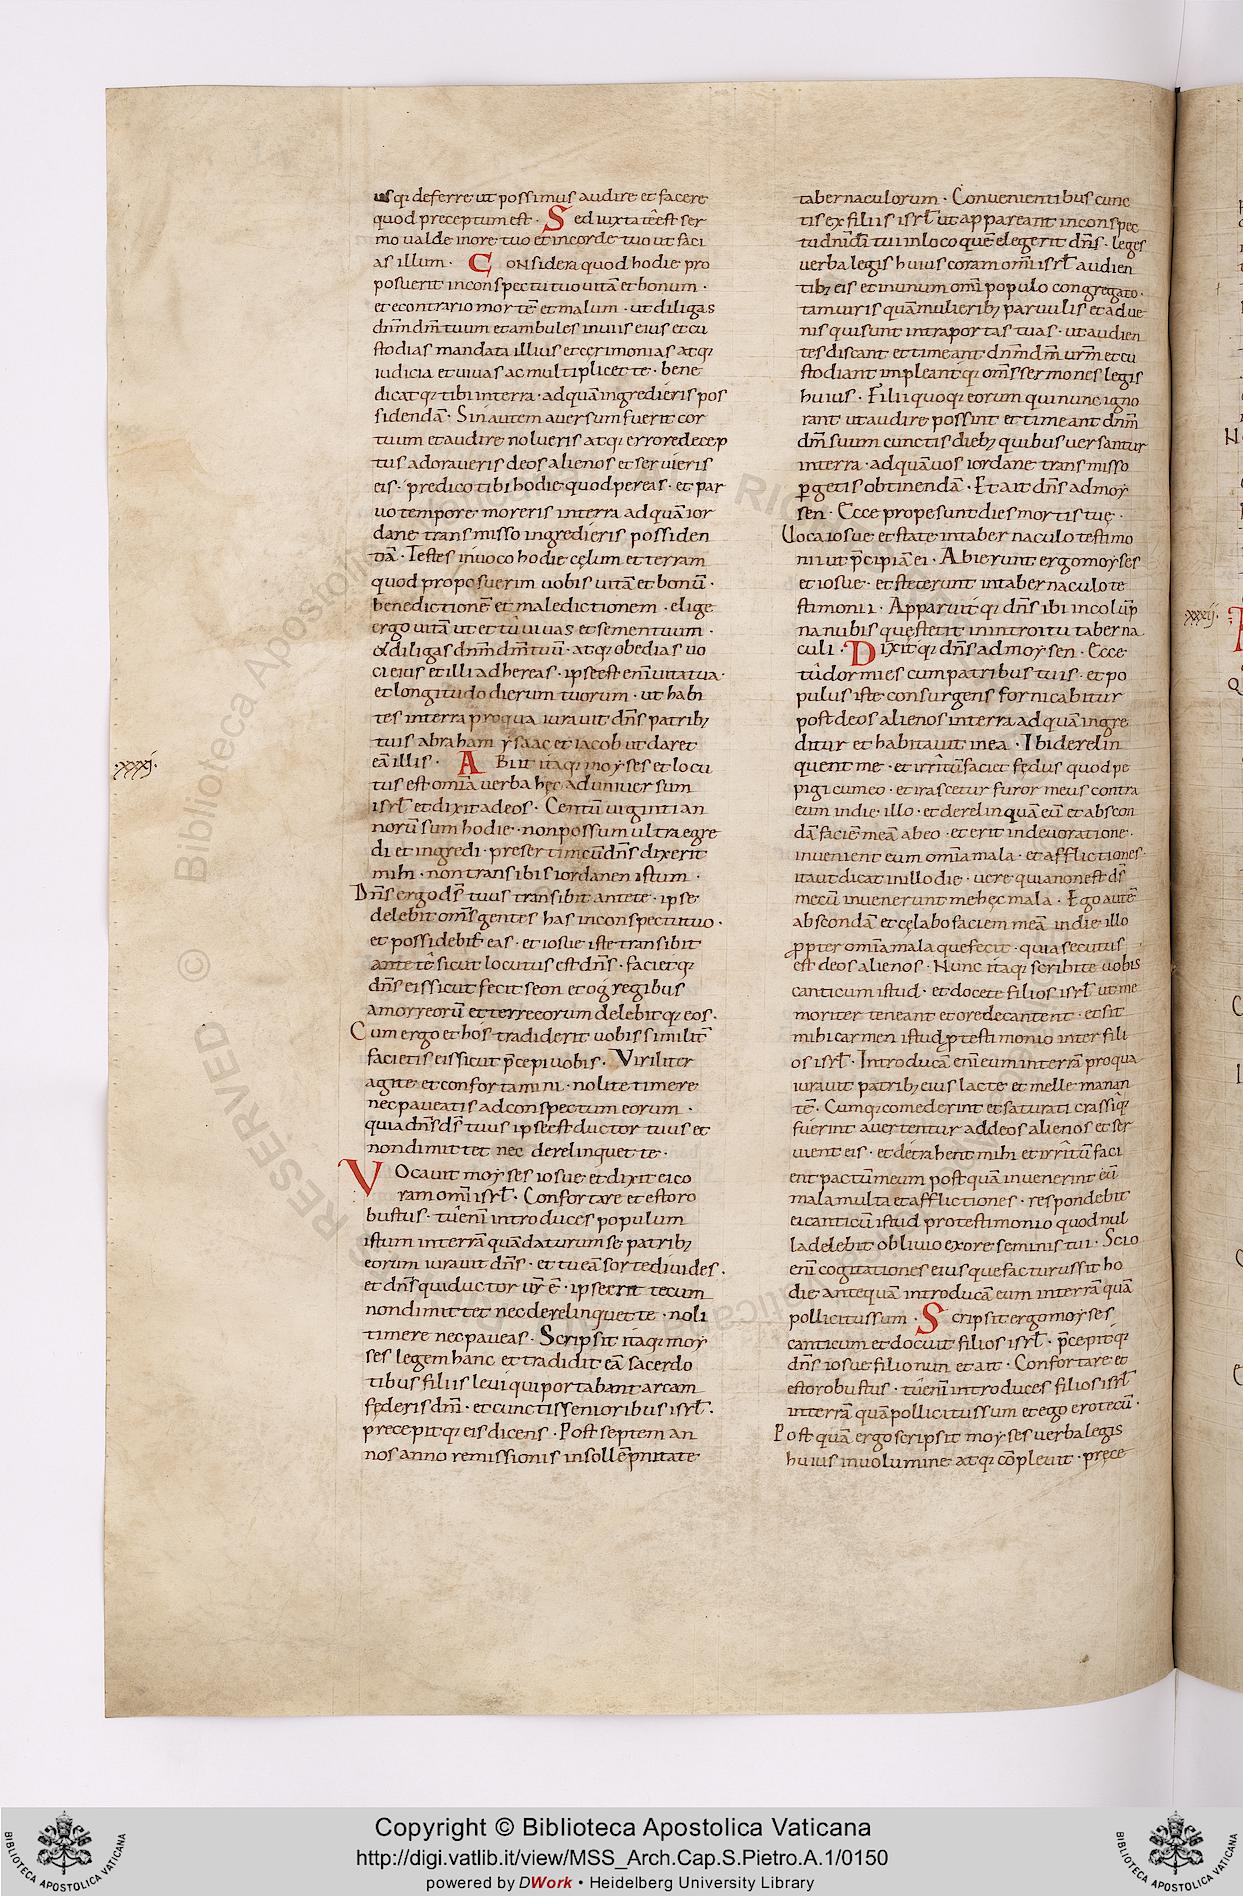 usq; deferre ut possimus audire et facere
quod preceptum est · Sed iuxta te est ser
mo ualde inore tuo et incorde tuo ut faci
as illum · Considera quod hodie pro
posuerit inconspectu tuo uitā et bonum ·
et econtrario mortē et malum · ut diligas
dnm̄ dm̄ tuum et ambules inuiis eius et cu
stodias mandata illius et cęrimonias atq;
iudicia et uiuas ac multiplicet te · bene
dicat q; tibi interra · ad quā ingredieris pos
sidendā · Sin autem auersum fuerit cor
tuum et audire nolueris atq; errore decep
tus adoraueris deos alienos et seruieris
eis · predico tibi hodie quod pereas · et par
uo tempore moreris interra ad quā ior
dane transmisso ingredieris possiden
dā · Testes inuoco hodie cęlum et terram
quod proposuerim uobis uitā et bonū ·
benedictionē et maledictionem · elige
ergo uitā ut et tu uiuas et semen tuum ·
& diligas dnm̄ dm̄ tuū · atq; obedias uo
ci eius et illi adhereas · ipse est enī uita tua ·
et longitudo dierum tuorum · ut habi
tes interra pro qua iurauit dns̄ patrib;
tuis abraham ysaac et iacob ut daret
eā illis · Abiit itaq; moyses et locu
tus est omīa uerba hęc ad uniuersum
isrł et dixit ad eos · Centū uiginti an
norū sum hodie · non possum ultra egre
di et ingredi · presertim cū dns̄ dixerit
mihi · non transibis iordanen istum ·
Dns̄ ergo ds̄ tuus transibit ante te · ipse
delebit oms̄ gentes has inconspectu tuo ·
et possidebis eas · et iosue iste transibit
ante te sicut locutus est dns̄ · faciet q;
dns̄ eis sicut fecit seon et og regibus
amorreorū et terre eorum delebit q; eos ·
Cum ergo et hos tradiderit uobis similit̄
facietis eis sicut p̄cepi uobis · Viriliter
agite et confortamini · nolite timere
nec paueatis ad conspectum eorum ·
quia dns̄ ds̄ tuus ipse est ductor tuus et
non dimittet nec derelinquet te ·
Vocauit moyses iosue et dixit ei co
ram omī isrł · Confortare et esto ro
bustus · tu enī introduces populum
istum interrā quā daturum se patrib;
eorum iurauit dns̄ · et tu eā sorte diuides ·
et dns̄ qui ductor ur̄ ē · ipse erit tecum
non dimittet nec derelinquet te · noli
timere nec paueas · Scripsit itaq; moy
ses legem hanc et tradidit eā sacerdo
tibus filiis leui qui portabant arcam
fęderis dnī · et cunctis senioribus isrł ·
precepit q; eis dicens · Post septem an
nos anno remissionis in sollēpnitate
tabernaculorum · Conuenientibus cunc
tis ex filiis isrł ut appareant inconspec
tu dnī dī tui inloco quē elegerit dns̄ · leges
uerba legis huius coram omī isrł audien
tib; eis et inunum omī populo congregato ·
tam uiris quā mulierib; paruulis et adue
nis qui sunt intra portas tuas · ut audien
tes discant et timeant dnm̄ dm̄ ur̄m et cu
stodiant impleant q; oms̄ sermones legis
huius · Filii quoq; eorum qui nunc igno
rant ut audire possint et timeant dnm̄
dm̄ suum cunctis dieb; quibus uersantur
interra · ad quā uos iordane transmisso
p̱getis obtinendā · Et ait dns̄ ad moy
sen · Ecce prope sunt dies mortis tuę ·
Uoca iosue et state intabernaculo testimo
nii ut p̄cipiā ei · Abierunt ergo moyses
et iosue · et steterunt intabernaculo te
stimonii · Apparuit q; dns̄ ibi incolūp
na nubis quę stetit inintroitu taberna
culi · Dixit q; dns̄ ad moysen · Ecce
tu dormies cum patribus tuis · et po
pulus iste consurgens fornicabitur
post deos alienos interra ad quā ingre
ditur et habitauit inea · Ibi derelin
quent me · et irritū faciet fędus quod pe
pigi cum eo · et irascetur furor meus contra
eum indie illo · et derelinquā eū et abscon
dā faciē meā abeo · et erit indeuoratione ·
inuenient eum omīa mala · et afflictiones ·
ita ut dicat inillo die · uere quia non est ds̄
mecū inuenerunt me hęc mala · Ego autē
abscondā et cęlabo faciem meā indie illo
p̱pter omīa mala que fecit · quia secutus
est deos alienos · Nunc itaq; scribite uobis
canticum istud · et docete filios isrł ut me
moriter teneant et ore decantent · et sit
mihi carmen istud p̱ testimonio inter fili
os isrł · Introducā enī eum interrā pro qua
iuraui patrib; eius lacte et melle manan
tē · Cumq; comederint et saturati crassiq;
fuerint auertentur ad deos alienos et ser
uient eis · et detrahent mihi et irritū faci
ent pactū meum postquā inuenerint eū
mala multa et afflictiones · respondebit
ei canticū istud pro testimonio quod nul
la delebit obliuio exore seminis tui · Scio
enī cogitationes eius que facturus sit ho
die antequā introducā eum interrā quā
pollicitus sum · Scripsit ergo moyses
canticum et docuit filios isrł · p̄cepit q;
dns̄ iosue filio nun et ait · Confortare et
esto robustus · tu enī introduces filios isrł
interrā quā pollicitus sum et ego ero tecū ·
Postquā ergo scripsit moyses uerba legis
huius inuolumine atq; cōpleuit · pręce
·xxxi·
·xxxii·
© Biblioteca Apostolica Vaticana
ALL RIGHTS RESERVED
Copyright © Biblioteca Apostolica Vaticana
http://digi.vatlib.it/view/MSS_Arch.Cap.S.Pietro.A.1/0150
powered by DWork • Heidelberg University Library
BIBLIOTECA APOSTOLICA VATICANA
BIBLIOTECA APOSTOLICA VATICANA